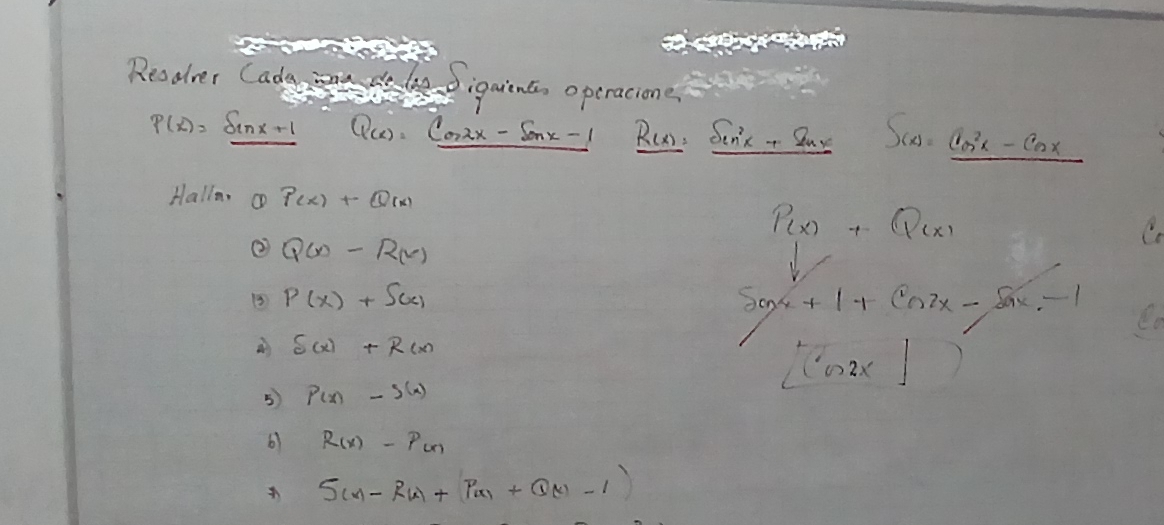 Resolver Cada una de las Siguientes operaciones
P(x)= Senx+1 Q(x)= Cos2x - Senx - 1 R(x)= Sen²x + Senx S(x)= Cos²x - Cosx
Hallar ① P(x) + Q(x)
② Q(x) - R(x)
③ P(x) + S(x)
4) S(x) + R(x)
5) P(x) - S(x)
6) R(x) - P(x)
7) S(x) - R(x) + (P(x) + Q(x) - 1)
P(x) + Q(x)
Senx + 1 + Cos2x - Senx - 1
[Cos2x]